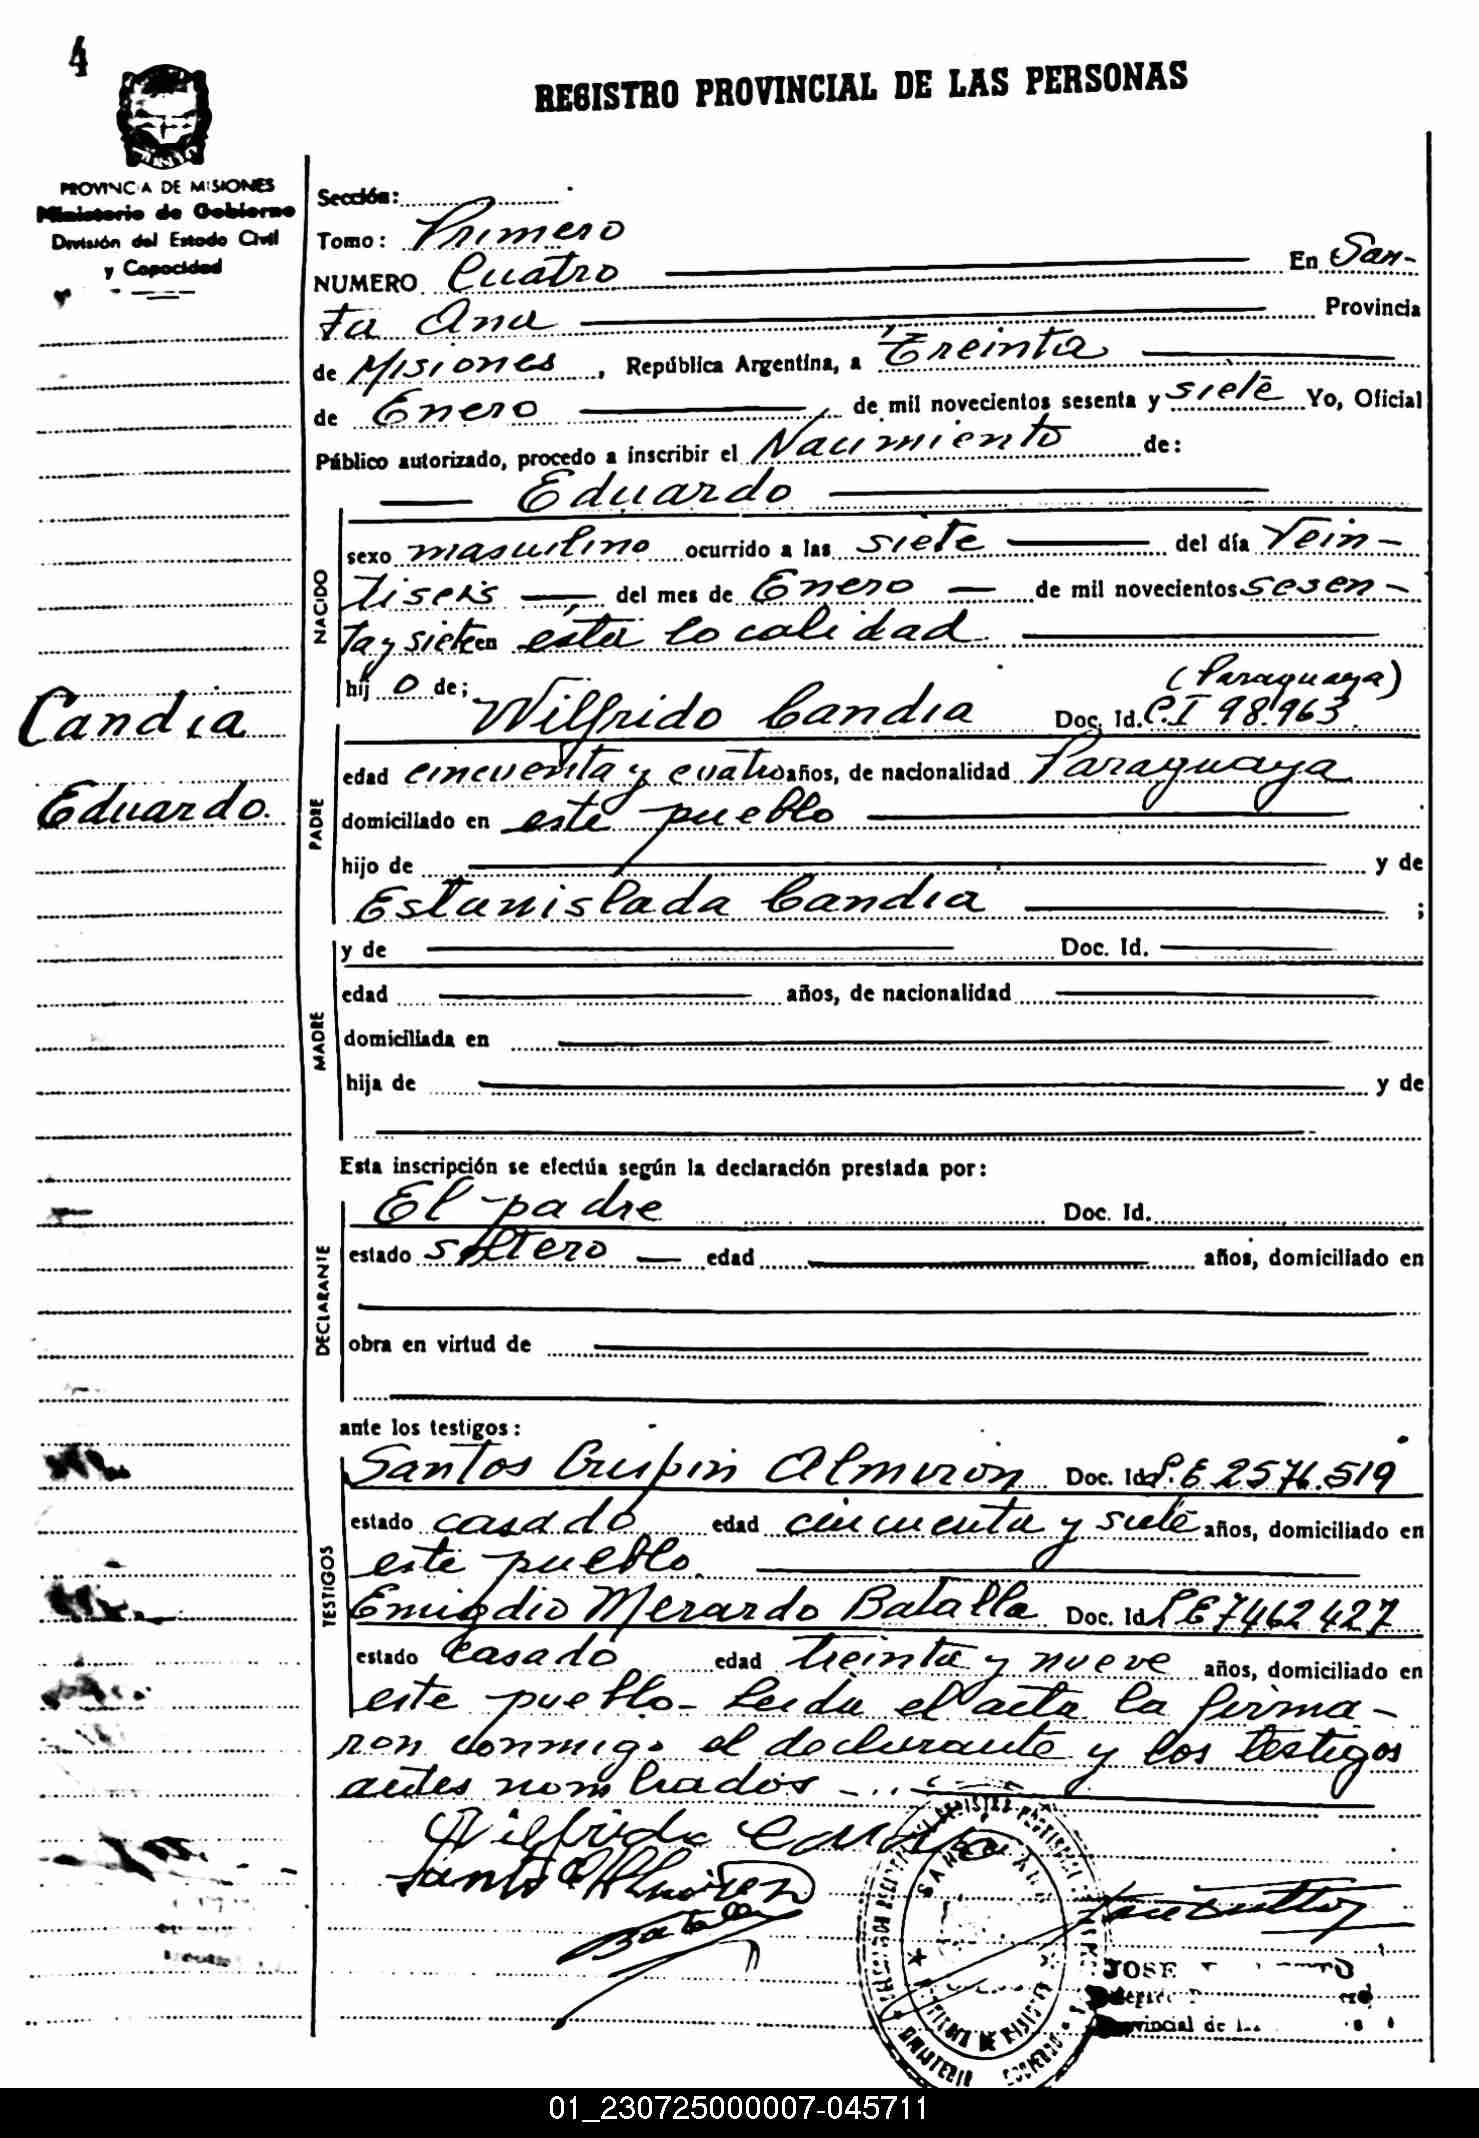 4
REGISTRO PROVINCIAL DE LAS PERSONAS
PROVINCIA DE MISIONES
Ministerio de Gobierno
División del Estado Civil
y Capacidad
Sección:
Tomo: Primero
NUMERO Cuatro En San-
ta Ana Provincia
de Misiones, República Argentina, a Treinta
de Enero de mil novecientos sesenta y siete Yo, Oficial
Público autorizado, procedo a inscribir el Nacimiento de:
Eduardo
NACIDO
sexo masculino ocurrido a las siete del día Vein-
tiseis del mes de Enero de mil novecientos sesen-
ta y siete en esta localidad
hij o de; Wilfrido Candia Doc. Id. C.I 98.963.
(Paraguaya)
Candia
Eduardo.
PADRE
edad cincuenta y cuatro años, de nacionalidad Paraguaya
domiciliado en este pueblo
hijo de y de
Estanislada Candia ;
MADRE
y de Doc. Id.
edad años, de nacionalidad
domiciliada en
hija de y de
Esta inscripción se efectúa según la declaración prestada por:
DECLARANTE
El padre Doc. Id.
estado soltero edad años, domiciliado en
obra en virtud de
ante los testigos:
TESTIGOS
Santos Crispin Almiron Doc. Id. L.E. 2574.519
estado casado edad cincuenta y siete años, domiciliado en
este pueblo.
Emigdio Merardo Batalla Doc. Id. L E 7462427
estado casado edad treinta y nueve años, domiciliado en
este pueblo- Leida el acta la firma-
ron conmigo el declarante y los testigos
antes nombrados -
Wilfrido Candia
Santos Almiron
Batalla
JOSE
Provincial de
MINISTERIO GOBIERNO
01_230725000007-045711